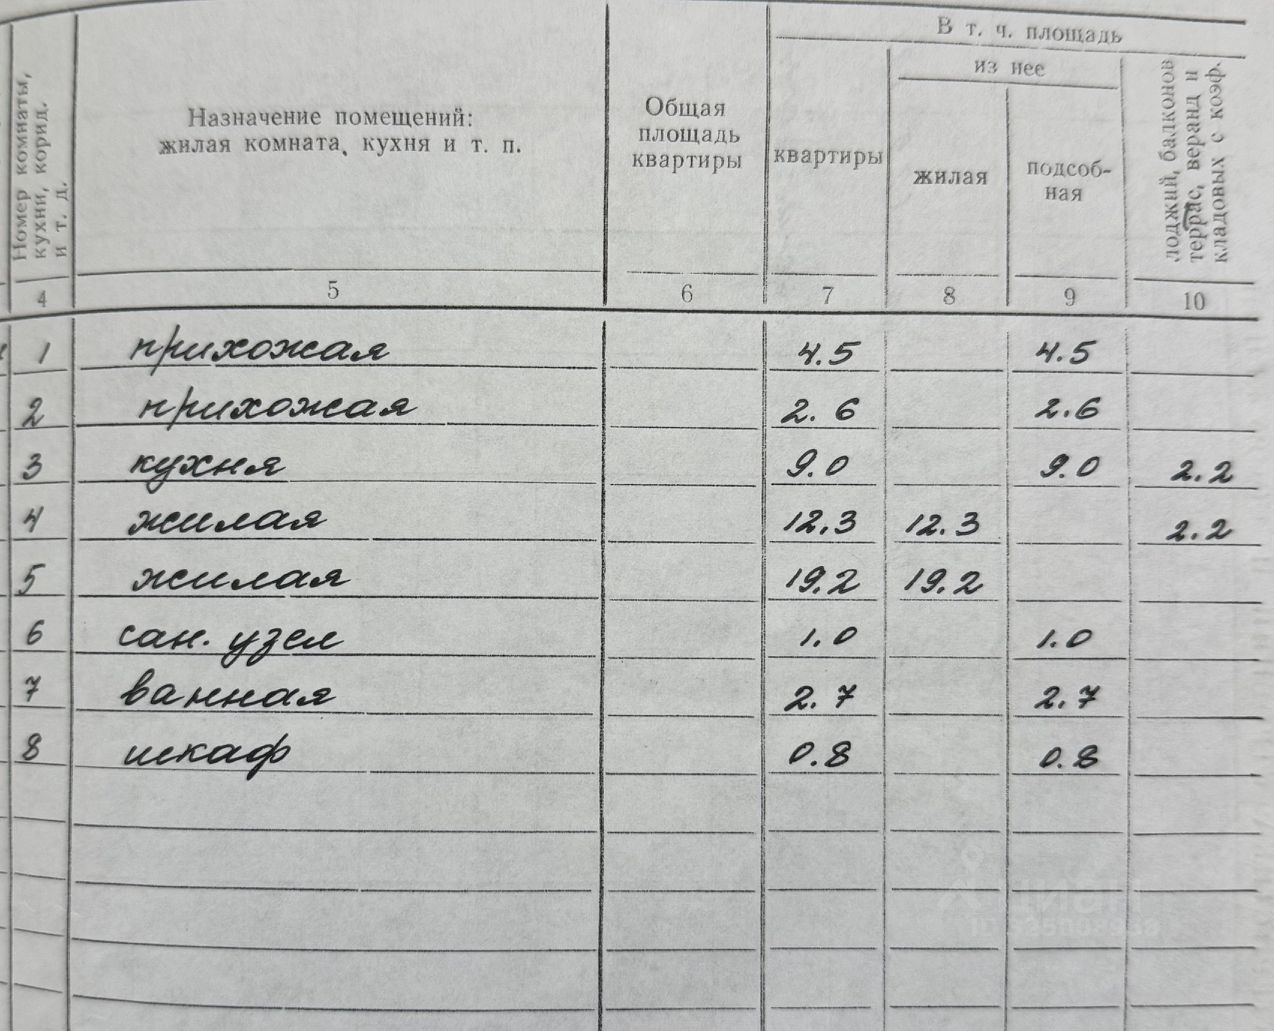 Номер комнаты, кухни, корид. и т. д.
Назначение помещений:
жилая комната, кухня и т. п.
Общая
площадь
квартиры
В т. ч. площадь
из нее
квартиры
жилая
подсоб-
ная
лоджий, балконов
террас, веранд и
кладовых с коэф.
4 5 6 7 8 9 10
1 прихожая 4.5 4.5
2 прихожая 2.6 2.6
3 кухня 9.0 9.0 2.2
4 жилая 12.3 12.3 2.2
5 жилая 19.2 19.2
6 сан. узел 1.0 1.0
7 ванная 2.7 2.7
8 шкаф 0.8 0.8